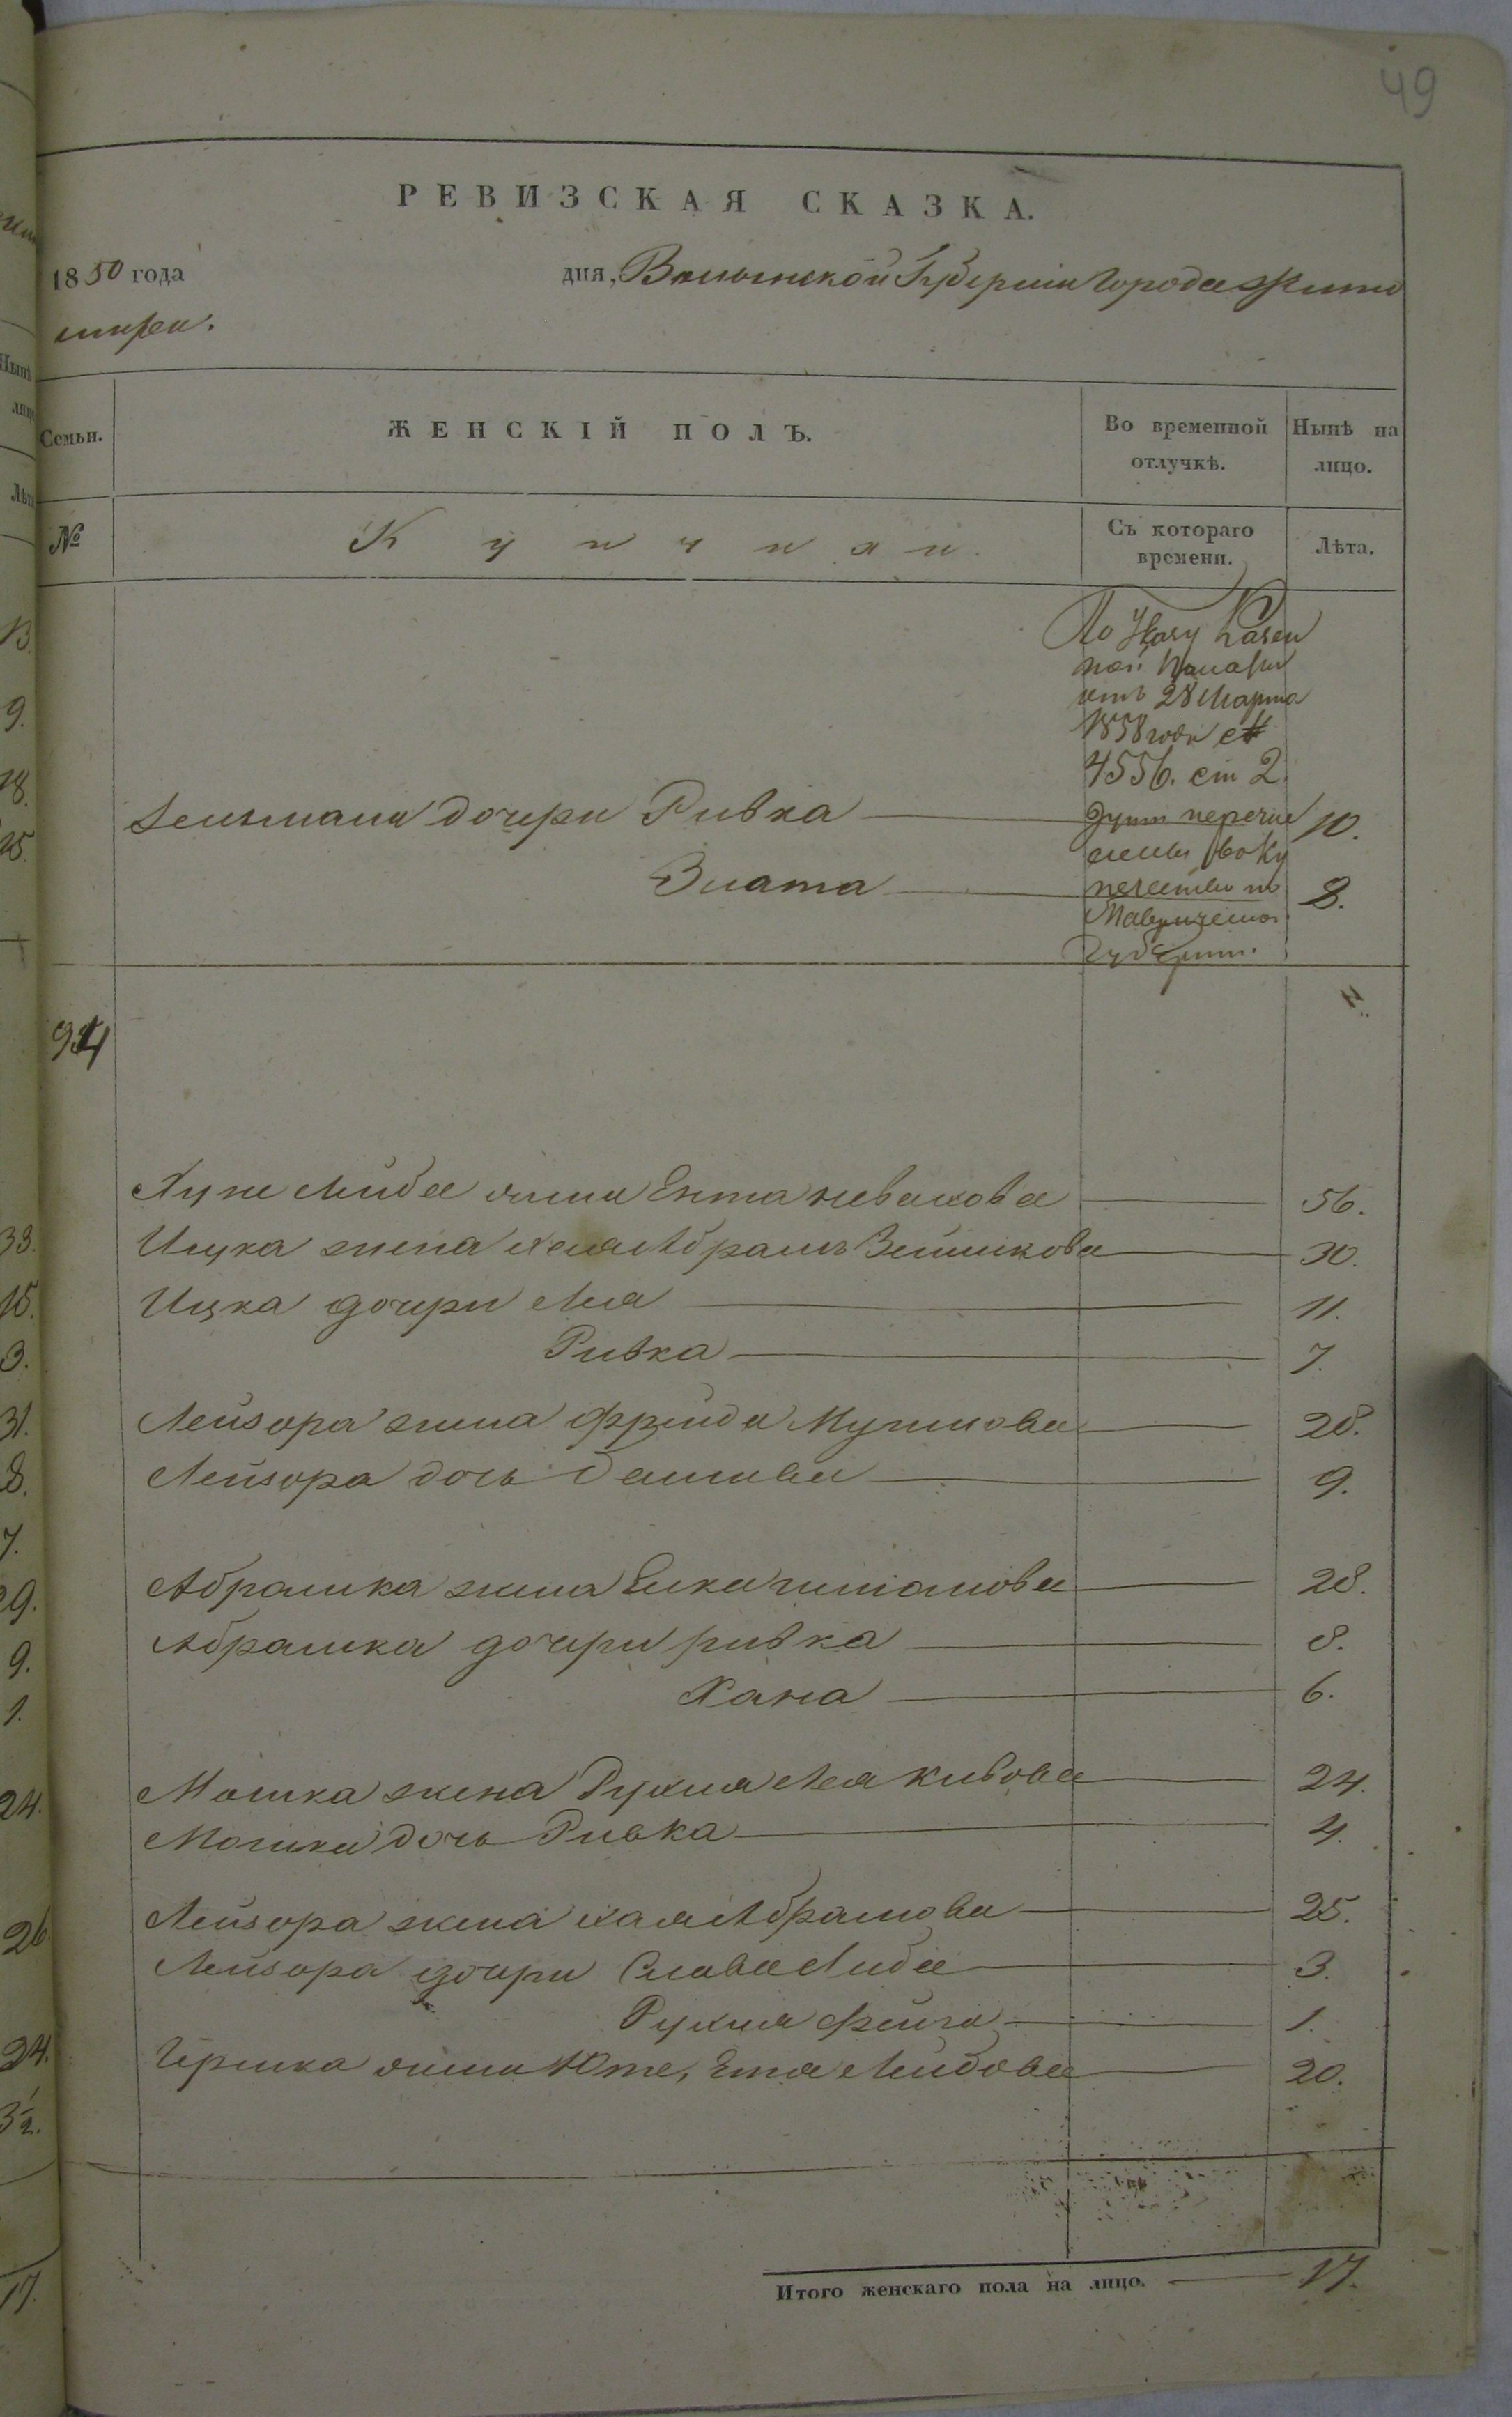 49
РЕВИЗСКАЯ СКАЗКА.
1850 года дня, Волынской Губернии Города Жито
мира.
Семьи. ЖЕНСКІЙ ПОЛЪ. Во временной отлучкѣ. Нынѣ на лицо.
№ Съ котораго времени. Лѣта.
По Указу Казен
ной Палаты
отъ 28 Марта
1858 года
4556. ст 2
Зельмана дочери Ривка 10.
Злата 8.
перечис
лены во Ку
печество по
Таврической
Губернии.
жена Ента 56.
Ицка жена Хая Абрамъ 30.
Ицка дочери Лея 11.
Ривка 7.
Лейзора жена Фрейда 28.
Лейзора дочь 9.
Абрамка жена Елка 28.
Абрамка дочери Ривка 8.
Хана 6.
Мошка жена Рухля Лея Кивова 24.
Мошка дочь Ривка 4.
Лейзора жена Хая Абрамова 25.
Лейзора дочери Слава Либа 3.
Рухля Фейга 1.
Гершка жена Юте, Ента Лейбова 20.
Итого женскаго пола на лицо. 17.